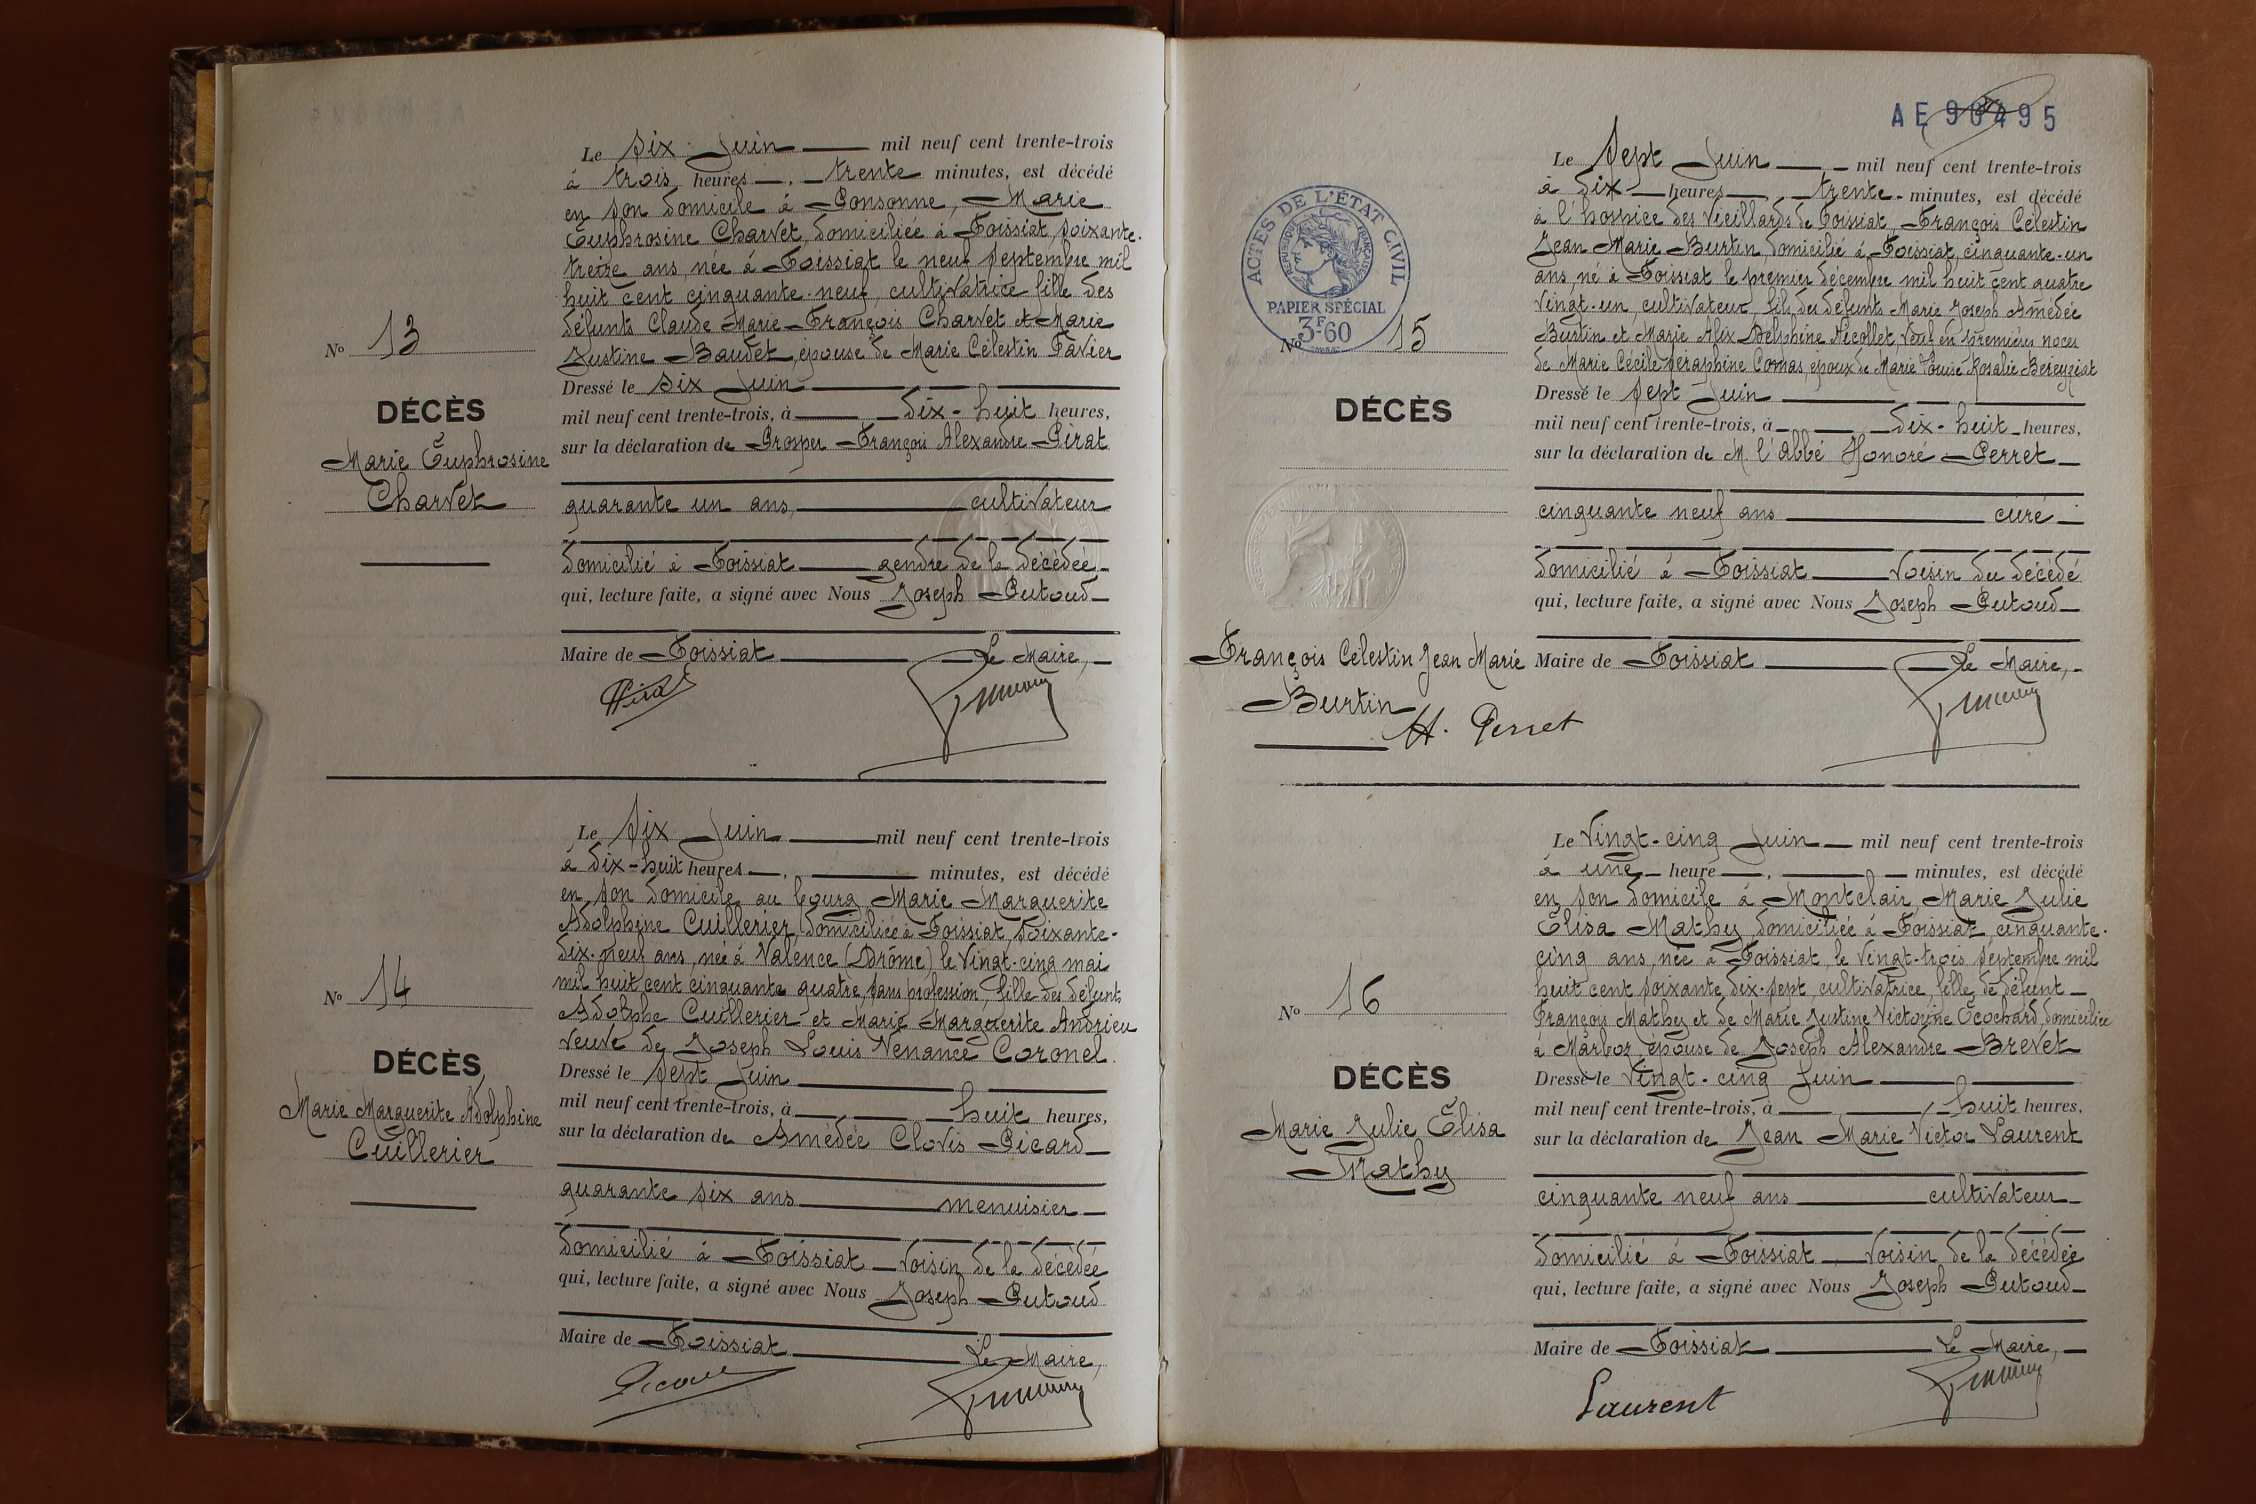 Le six Juin mil neuf cent trente-trois
à trois heures, trente minutes, est décédé
en son domicile à Ponsonne, Marie
Euphrosine Charvet, domiciliée à Foissiat, soixante-
treize ans, née à Foissiat le neuf septembre mil
huit cent cinquante-neuf, cultivatrice fille des
défunts Claude Marie François Charvet et Marie
Justine Baudet, épouse de Marie Célestin Favier
Nº 13
Dressé le six Juin
DÉCÈS
mil neuf cent trente-trois, à dix-huit heures,
sur la déclaration de Prosper François Alexandre Pirat
Marie Euphrosine
Charvet
quarante un ans, cultivateur
domicilié à Foissiat gendre de la décédée
qui, lecture faite, a signé avec Nous Joseph Putoud
Maire de Foissiat Le Maire,
Pirat
Le six Juin mil neuf cent trente-trois
à dix-huit heures, minutes, est décédé
en son domicile au bourg Marie Marguerite
Adolphine Cuillerier domiciliée à Foissiat, soixante-
dix-neuf ans, née à Valence (Drôme) le vingt-cinq mai
mil huit cent cinquante quatre, sans profession, fille des défunts
Adolphe Cuillerier et Marie Marguerite Andrieu
veuve de Joseph Louis Venance Coronel.
Nº 14
DÉCÈS
Dressé le sept Juin
Marie Marguerite Adolphine
Cuillerier
mil neuf cent trente-trois, à huit heures,
sur la déclaration de Amédée Clovis Picard
quarante six ans menuisier
domicilié à Foissiat voisin de la décédée
qui, lecture faite, a signé avec Nous Joseph Putoud
Maire de Foissiat Le Maire,
Picard
AE 98495
Le sept Juin mil neuf cent trente-trois
à dix heures, trente minutes, est décédé
à l'hospice des vieillards de Foissiat, François Célestin
Jean Marie Burtin domicilié à Foissiat, cinquante-un
ans, né à Foissiat le premier décembre mil huit cent quatre
vingt-un, cultivateur, fils des défunts Marie Joseph Amédée
Burtin et Marie Alix Delphine Nicollet, veuf en premières noces
de Marie Cécile Séraphine Comas, époux de Marie Louise Rosalie Bereyziat
ACTES DE L'ÉTAT CIVIL
RÉPUBLIQUE FRANÇAISE
PAPIER SPÉCIAL
3F60
Nº 15
DÉCÈS
Dressé le sept Juin
mil neuf cent trente-trois, à dix-huit heures,
sur la déclaration de M. l'abbé Honoré Perret
cinquante neuf ans curé
domicilié à Foissiat voisin du décédé
qui, lecture faite, a signé avec Nous Joseph Putoud
François Célestin Jean Marie
Burtin
Maire de Foissiat Le Maire,
H. Perret
Le vingt-cinq Juin mil neuf cent trente-trois
à une heure, minutes, est décédé
en son domicile à Montclair, Marie Julie
Elisa Mathy, domiciliée à Foissiat, cinquante-
cinq ans, née à Foissiat, le vingt-trois septembre mil
huit cent soixante dix-sept, cultivatrice, fille de défunt
François Mathy et de Marie Justine Victorine Ecochard, domiciliée
à Marboz, épouse de Joseph Alexandre Brevet
Nº 16
DÉCÈS
Dressé le vingt-cinq Juin
Marie Julie Elisa
Mathy
mil neuf cent trente-trois, à huit heures,
sur la déclaration de Jean Marie Victor Laurent
cinquante neuf ans cultivateur
domicilié à Foissiat, voisin de la décédée
qui, lecture faite, a signé avec Nous Joseph Putoud
Maire de Foissiat Le Maire,
Laurent